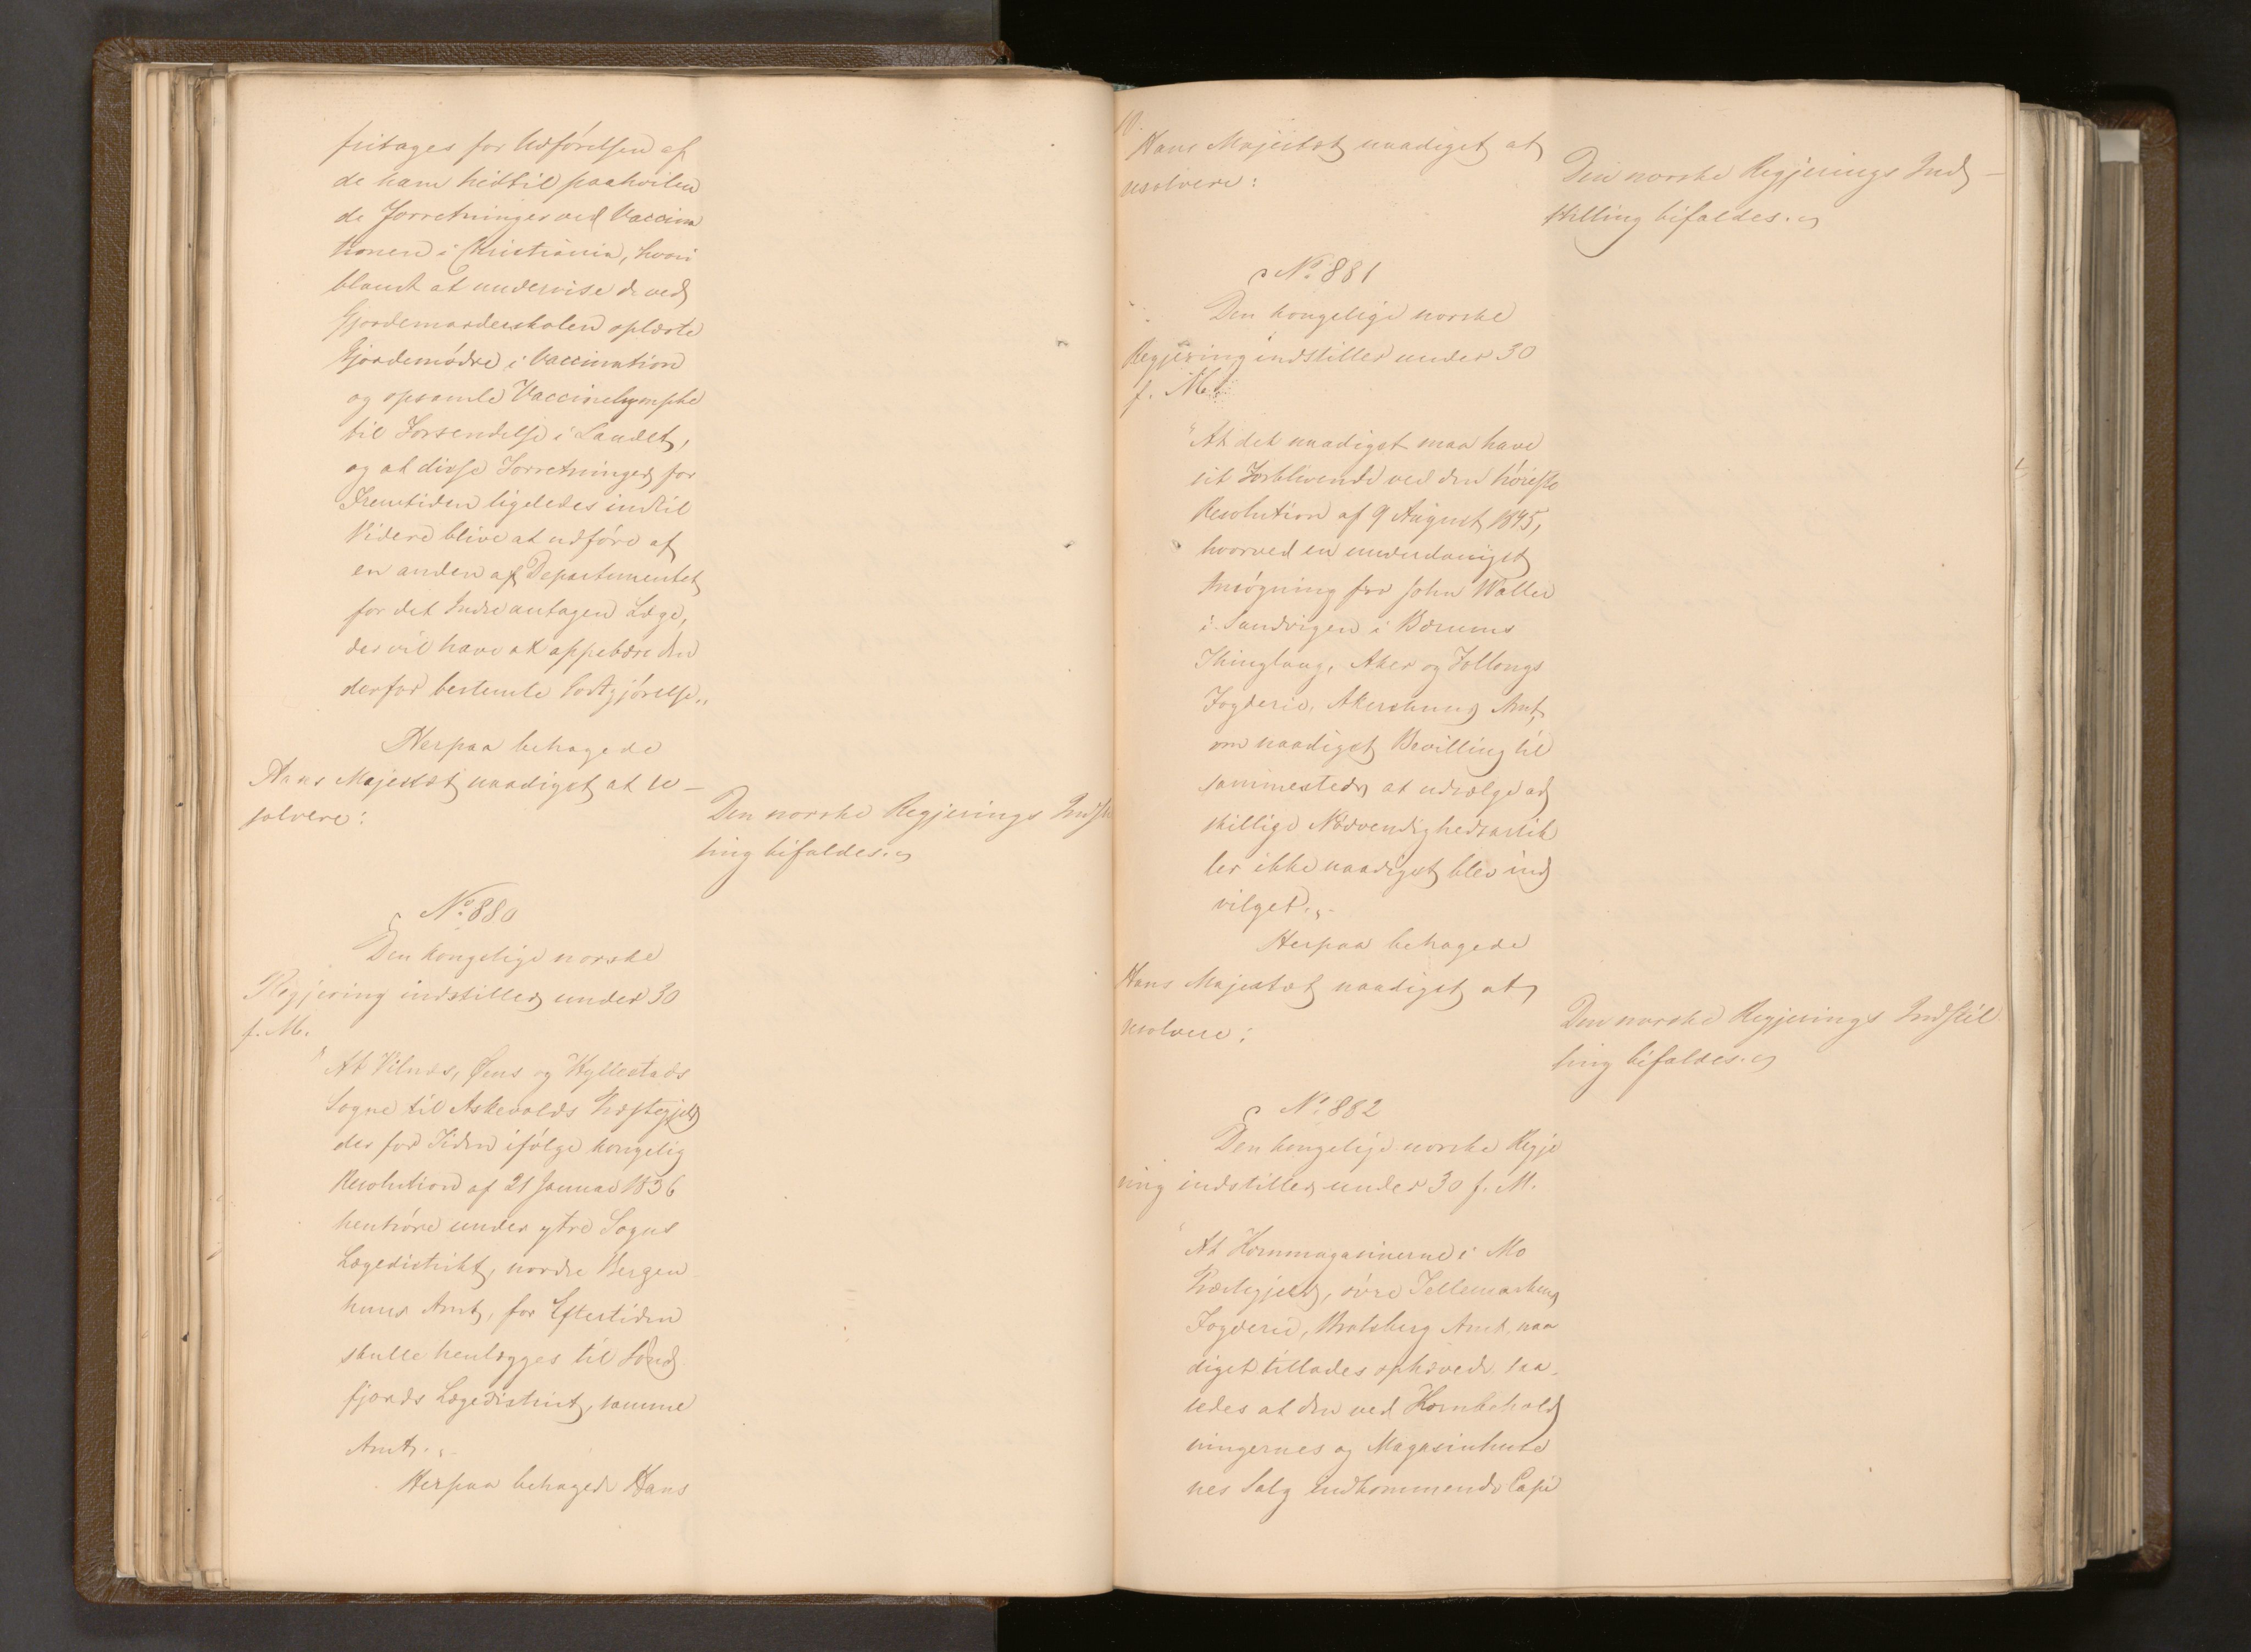 fritages for Udførelsen af
de ham hidtil paahvilen
de Forretninger ved Vaccina
tionen i Christiania, hvori
blandt at undervise de ved
Gjordemoderskolen oplærte
Gjordemødre i Vaccination
og opsamle Vaccinelymphe
til Forsendelse i Landet,
og at disse Forretninger for
Fremtiden ligeledes indtil
Videre blive at udføre af
en anden af Departementet
for det Indre antagen Læge,
der vil have at oppebære den
derfor bestemte Godtgjørelse„
Herpaa behagede
Hans Majestæt naadigst at re-
solvere:
Den norske Regjerings Indstil
ling bifaldes.
No. 880
Den kongelige norske
Regjering indstiller under 30
f. M.
"At Vilnæs, Øens og Hyllestads
Sogne til Askevolds Præstegjeld
der for Tiden ifølge kongelig
Resolution af 21 Januar 1836
henhøre under ytre Sogns
Lægedistrikt, nordre Bergen
huus Amt, for Eftertiden
skulle henlægges til Sønd
fjords Lægedistrict, samme
Amt.„
Herpaa behagede Hans
10.
Hans Majestæt naadigst at
resolvere:
Den norske Regjerings Ind-
stilling bifaldes.
No. 881
Den kongelige norske
Regjering indstiller under 30
f. M.
"At det naadigst maa have
sit Forblivende ved den høieste
Resolution af 9 August 1845,
hvorved en underdanigst
Ansøgning fra John Waller
i Sandvigen i Bærums
Thinglaug, Aker og Follougs
Fogderie, Akershuus Amt,
om naadigst Bevilling til
sammesteds at udsælge ad
skillige Nødvendighedsartik
ler ikke naadigst blev ind
vilget.„
Herpaa behagede
Hans Majestæt naadigst at
resolvere:
Den norske Regjerings Indstil
ling bifaldes.
No. 882
Den kongelige norske Regje
ring indstiller under 30 f. M.
"At Kornmagasinerne i Mo
Præstegjeld, øvre Tellemarkens
Fogderie, Bratsberg Amt, naa
digst tillades ophævede saa-
ledes at den ved Kornbehold
ningernes og Magasinhuse
nes Salg indkommende Capi